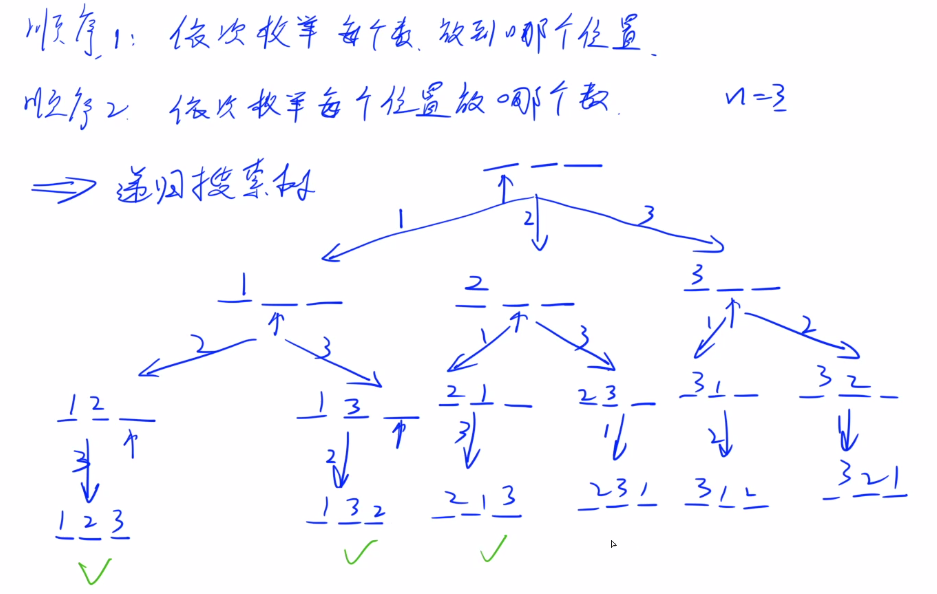 顺序1: 依次枚举每个数放到哪个位置.
顺序2. 依次枚举每个位置放哪个数. n=3
⇒ 递归搜索树
1 2 3
1 2 3
2 3 1 3 1 2
1 2 1 3 2 1 2 3 3 1 3 2
3 2 3 1 2 1
1 2 3 1 3 2 2 1 3 2 3 1 3 1 2 3 2 1